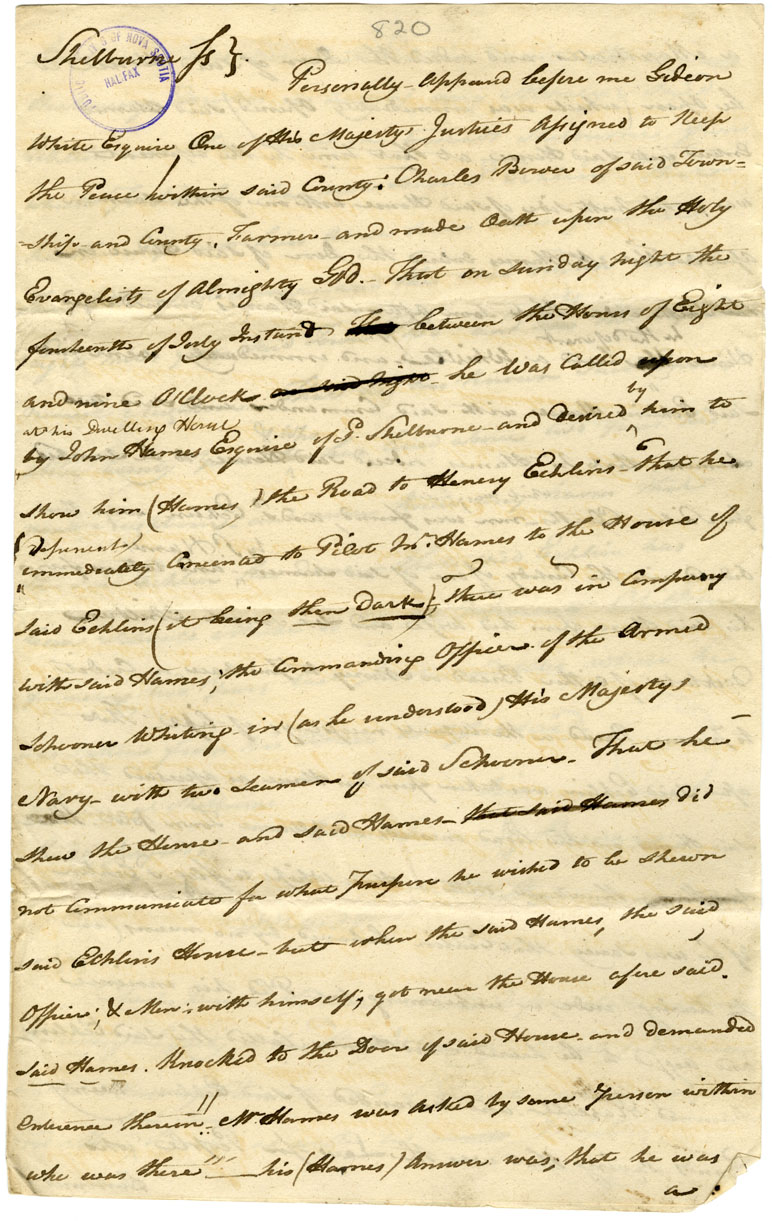 820
Shelburne ss}.
OF NOVA SCOTIA
HALIFAX
Personally Appeard before me Gideon
White Esquire One of His Majestys Justices Assigned to Keep
the Peace within said County; Charles Bower of said Town=
-ship and County, Farmer and made Oath upon the Holy
Evangelists of Almighty God. That on sunday night the
fourteenth of July Instant between the Hours of Eight
and nine OClock on said night he was Called upon
at his Dwelling House
by John Hames Esquire of P. Shelburne and desired by him to
show him (Hames) the Road to Henery Echlins that he
(Deponent)
immediately Concented to Pilot Mr. Hames to the House of
said Echlins (it being then Dark) There was in Company
with said Hames, the Commanding Officer of the Armed
Schooner Whiting in (as he understood) His Majestys
Navy with two seamen of said Schooner. That he
shew the House and said Hames that said Hames did
not Communicate for what Purpose he wished to be shewn
said Echlins House but when the said Hames, the said
Officer, & Men, with himself, got near the House afore said.
said Hames. Knocked to the Door of said House and demanded
Enterence therein Mr Hames was asked by some Person within
who was there" his (Hames) Answer was, that he was
a